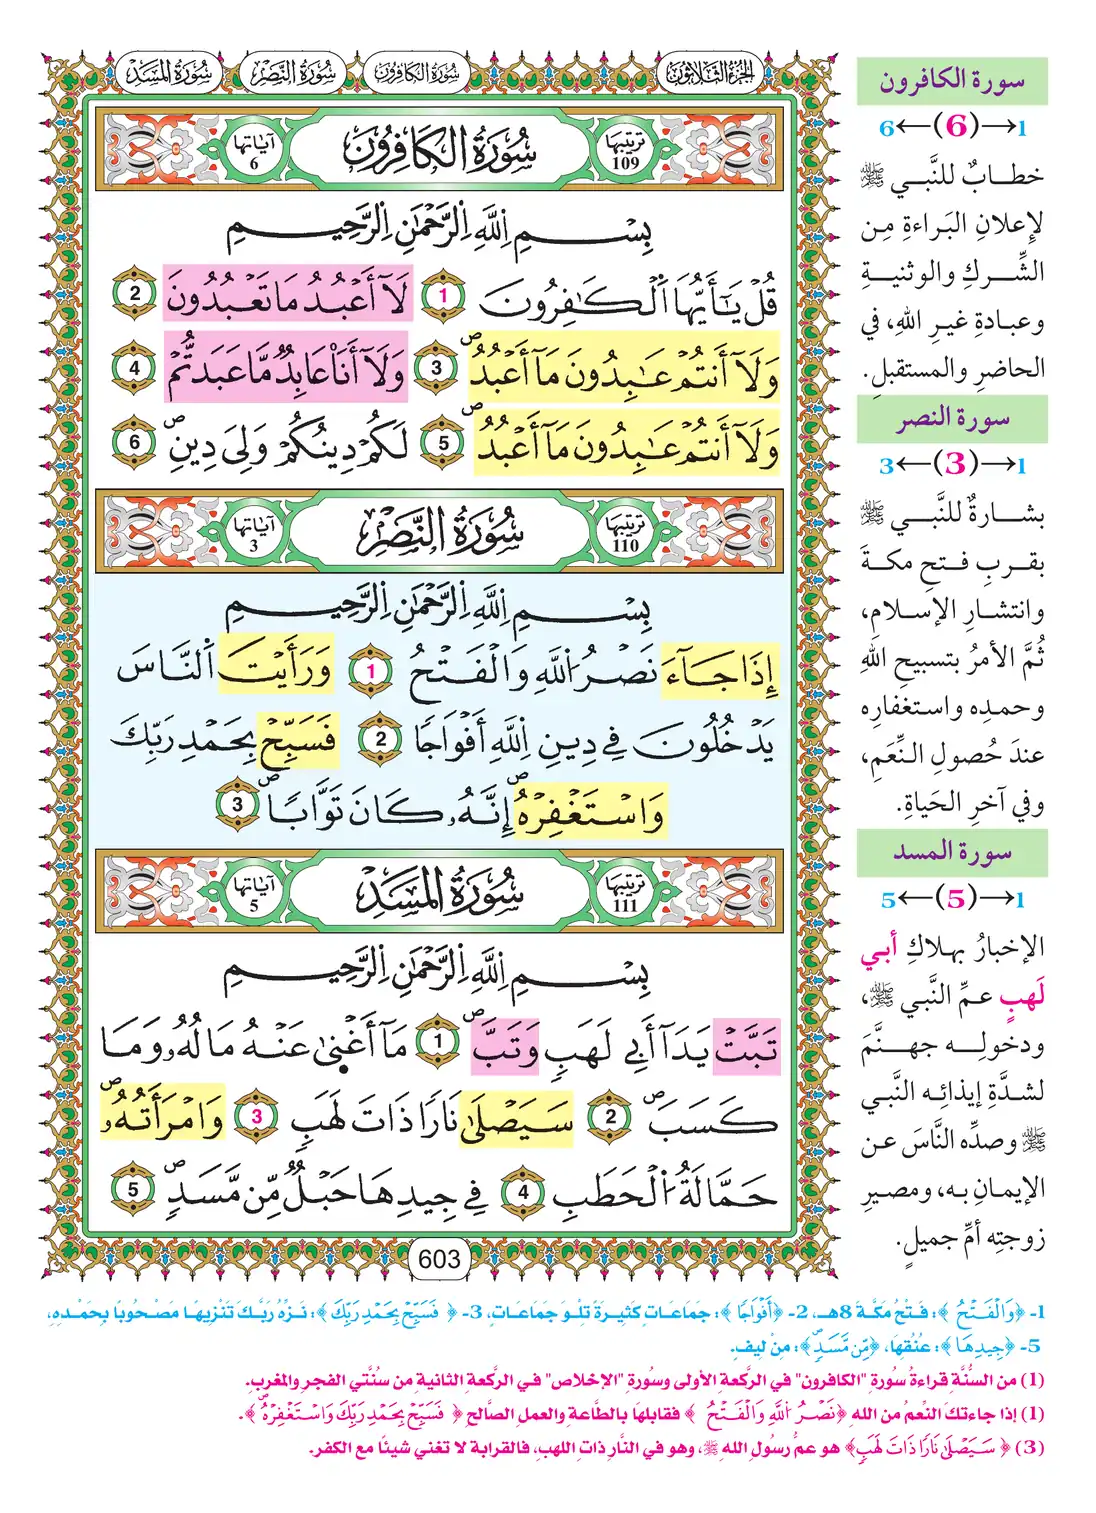 الجزء الثلاثون
سورة الكافرون
سورة النصر
سورة المسد
ترتيبها 109
سُورَةُ الكَافِرُونَ
آياتها 6
بِسْمِ اللَّهِ الرَّحْمَٰنِ الرَّحِيمِ
قُلْ يَٰٓأَيُّهَا ٱلْكَٰفِرُونَ 1 لَآ أَعْبُدُ مَا تَعْبُدُونَ 2
وَلَآ أَنتُمْ عَٰبِدُونَ مَآ أَعْبُدُ 3 وَلَآ أَنَا۠ عَابِدٌ مَّا عَبَدتُّمْ 4
وَلَآ أَنتُمْ عَٰبِدُونَ مَآ أَعْبُدُ 5 لَكُمْ دِينُكُمْ وَلِىَ دِينِ 6
ترتيبها 110
سُورَةُ النَّصْرِ
آياتها 3
بِسْمِ اللَّهِ الرَّحْمَٰنِ الرَّحِيمِ
إِذَا جَآءَ نَصْرُ ٱللَّهِ وَٱلْفَتْحُ 1 وَرَأَيْتَ ٱلنَّاسَ
يَدْخُلُونَ فِى دِينِ ٱللَّهِ أَفْوَاجًا 2 فَسَبِّحْ بِحَمْدِ رَبِّكَ
وَٱسْتَغْفِرْهُ إِنَّهُۥ كَانَ تَوَّابًۢا 3
ترتيبها 111
سُورَةُ المَسَدِ
آياتها 5
بِسْمِ اللَّهِ الرَّحْمَٰنِ الرَّحِيمِ
تَبَّتْ يَدَآ أَبِى لَهَبٍ وَتَبَّ 1 مَآ أَغْنَىٰ عَنْهُ مَالُهُۥ وَمَا
كَسَبَ 2 سَيَصْلَىٰ نَارًا ذَاتَ لَهَبٍ 3 وَٱمْرَأَتُهُۥ
حَمَّالَةَ ٱلْحَطَبِ 4 فِى جِيدِهَا حَبْلٌ مِّن مَّسَدٍۭ 5
603
سورة الكافرون
1→(6)←6
خطابٌ للنَّبي ﷺ
لإعلانِ البَراءةِ مِن
الشِّركِ والوثنيةِ
وعبادةِ غيرِ اللهِ، في
الحاضرِ والمستقبلِ.
سورة النصر
1→(3)←3
بشارةٌ للنَّبي ﷺ
بقربِ فتحِ مكةَ
وانتشارِ الإسلامِ،
ثُمَّ الأمرُ بتسبيحِ اللهِ
وحمدِه واستغفارِه
عندَ حُصولِ النِّعَمِ،
وفي آخرِ الحَياةِ.
سورة المسد
1→(5)←5
الإخبارُ بهلاكِ أبي
لَهبٍ عمِّ النَّبي ﷺ،
ودخولِه جهنَّمَ
لشدَّةِ إيذائِه النَّبي
ﷺ وصدِّه النَّاسَ عن
الإيمانِ به، ومصيرِ
زوجتِه أمِّ جميلٍ.
1- ﴿وَالْفَتْحُ﴾: فَتْحُ مَكَّةَ 8هـ، 2- ﴿أَفْوَاجًا﴾: جَمَاعَاتٍ كَثِيرَةً تِلْوَ جَمَاعَاتٍ، 3- ﴿فَسَبِّحْ بِحَمْدِ رَبِّكَ﴾: نَزِّهْ رَبَّكَ تَنْزِيهًا مَصْحُوبًا بِحَمْدِهِ،
5- ﴿جِيدِهَا﴾: عُنُقِهَا، ﴿مِّن مَّسَدٍ﴾: مِنْ لِيفٍ.
(1) من السُّنَّةِ قراءةُ سُورةِ "الكافرون" في الرَّكعةِ الأولى وسُورةِ "الإخلاصِ" في الرَّكعةِ الثانيةِ من سُنَّتي الفجرِ والمغربِ.
(1) إذا جاءتكَ النِّعمُ من اللهِ ﴿نَصْرُ اللَّهِ وَالْفَتْحُ﴾ فقابلها بالطَّاعةِ والعملِ الصَّالحِ ﴿فَسَبِّحْ بِحَمْدِ رَبِّكَ وَاسْتَغْفِرْهُ﴾.
(3) ﴿سَيَصْلَىٰ نَارًا ذَاتَ لَهَبٍ﴾ هو عمُّ رسُولِ اللهِ ﷺ، وهو في النَّارِ ذاتِ اللهبِ، فالقرابة لا تغني شيئًا مع الكفر.